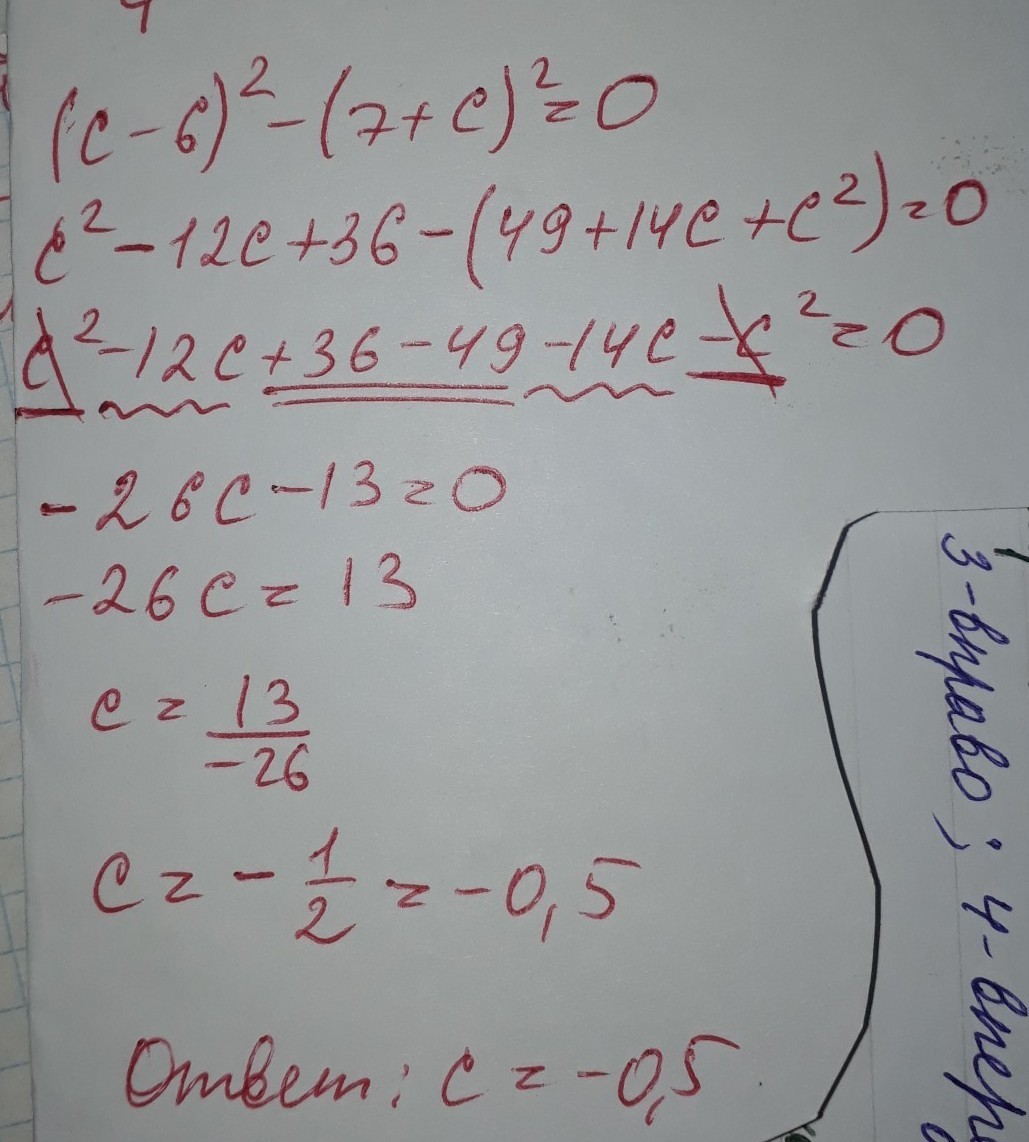 (c-6)²-(7+c)²=0
c²-12c+36-(49+14c+c²)=0
c²-12c+36-49-14c-c²=0
-26c-13=0
-26c=13
c=13/-26
c=-1/2=-0,5
Ответ: c=-0,5
3-вправо; 4-впер